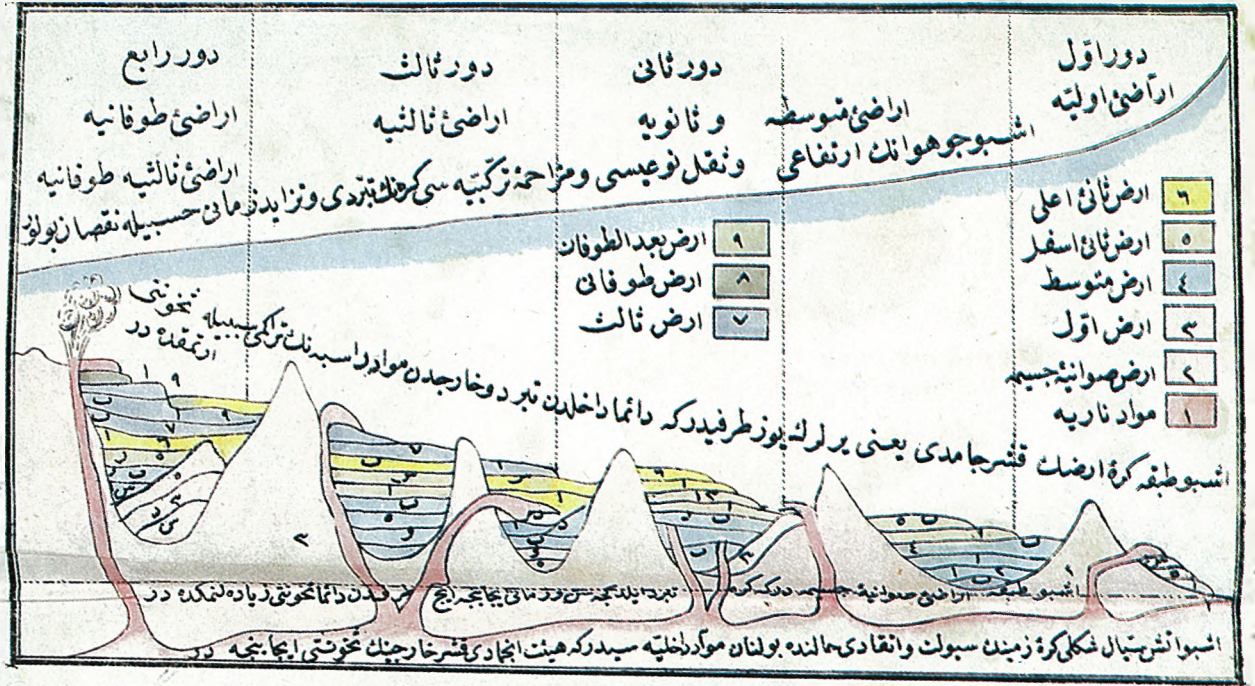 دور اوّل
اراضئ اوليّه
اراضئ متوسطه
دور ثانى
و ثانويه
دور ثالث
اراضئ ثالثيه
دور رابع
اراضئ طوفانيه
اراضئ ثالثيه طوفانيه
اشبو جو هوانك ارتفاعى و ثقل نوعيسى و مزاحمۀ تركيبيه سى كره نك تبردى و تزايد زمانى حسبيله نقصان بولور
٦ ارض ثانئ اعلى
٥ ارض ثانئ اسفل
٤ ارض متوسط
٣ ارض اوّل
٢ ارض صوانيۀ جسيمه
١ مواد ناريه
٩ ارض بعد الطوفان
٨ ارض طوفانى
٧ ارض ثالث
اشبو طبقه كرۀ ارضك قشر جامدى يعنى يرلرك يوز طرفيدركه دائما داخلدن تبرد و خارجدن مواد راسبه نك تراكمى سببيله ثخونتى
ارتمقده در
اشبو طبقه اراضئ صوانيۀ جسيمه دركه كره تبرد ايلديكجه
دائما ثخونتى زياده لنمكده در
اشبو آتش سيال شكلى كرۀ زمينك سيولت و اتقادى حالنده بولنان مواد داخليه سيدركه هيئت انجمادى قشر خارجينك ثخونتى ايجابنجه در